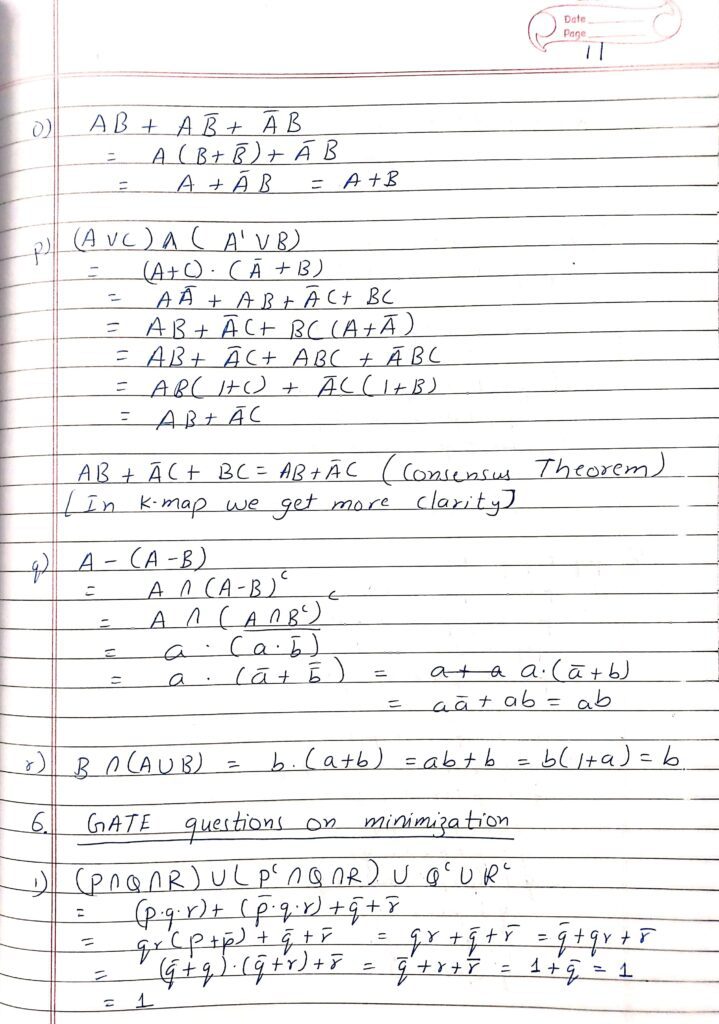 Date
Page
11
o) AB + AB̄ + ĀB
= A(B+B̄) + ĀB
= A + ĀB = A+B
p) (A∨C)∧(A'∨B)
= (A+C)·(Ā+B)
= AĀ + AB + ĀC + BC
= AB + ĀC + BC(A+Ā)
= AB + ĀC + ABC + ĀBC
= AB(1+C) + ĀC(1+B)
= AB + ĀC
AB + ĀC + BC = AB + ĀC (Consensus Theorem)
[In K-map we get more clarity]
q) A - (A-B)
= A ∩ (A-B)ᶜ
= A ∩ (A∩Bᶜ)ᶜ
= a · \overline{(a·b̄)}
= a · (ā + b̿) = a̶ ̶+̶ ̶a̶ a·(ā+b)
= aā + ab = ab
r) B∩(A∪B) = b.(a+b) = ab+b = b(1+a) = b
6. GATE questions on minimization
1) (P∩Q∩R)∪(Pᶜ∩Q∩R) ∪ Qᶜ∪Rᶜ
= (p.q.r) + (p̄.q.r) + q̄ + r̄
= qr(p+p̄) + q̄ + r̄ = qr + q̄ + r̄ = q̄ + qr + r̄
= (q̄+q).(q̄+r) + r̄ = q̄ + r + r̄ = 1 + q̄ = 1
= 1